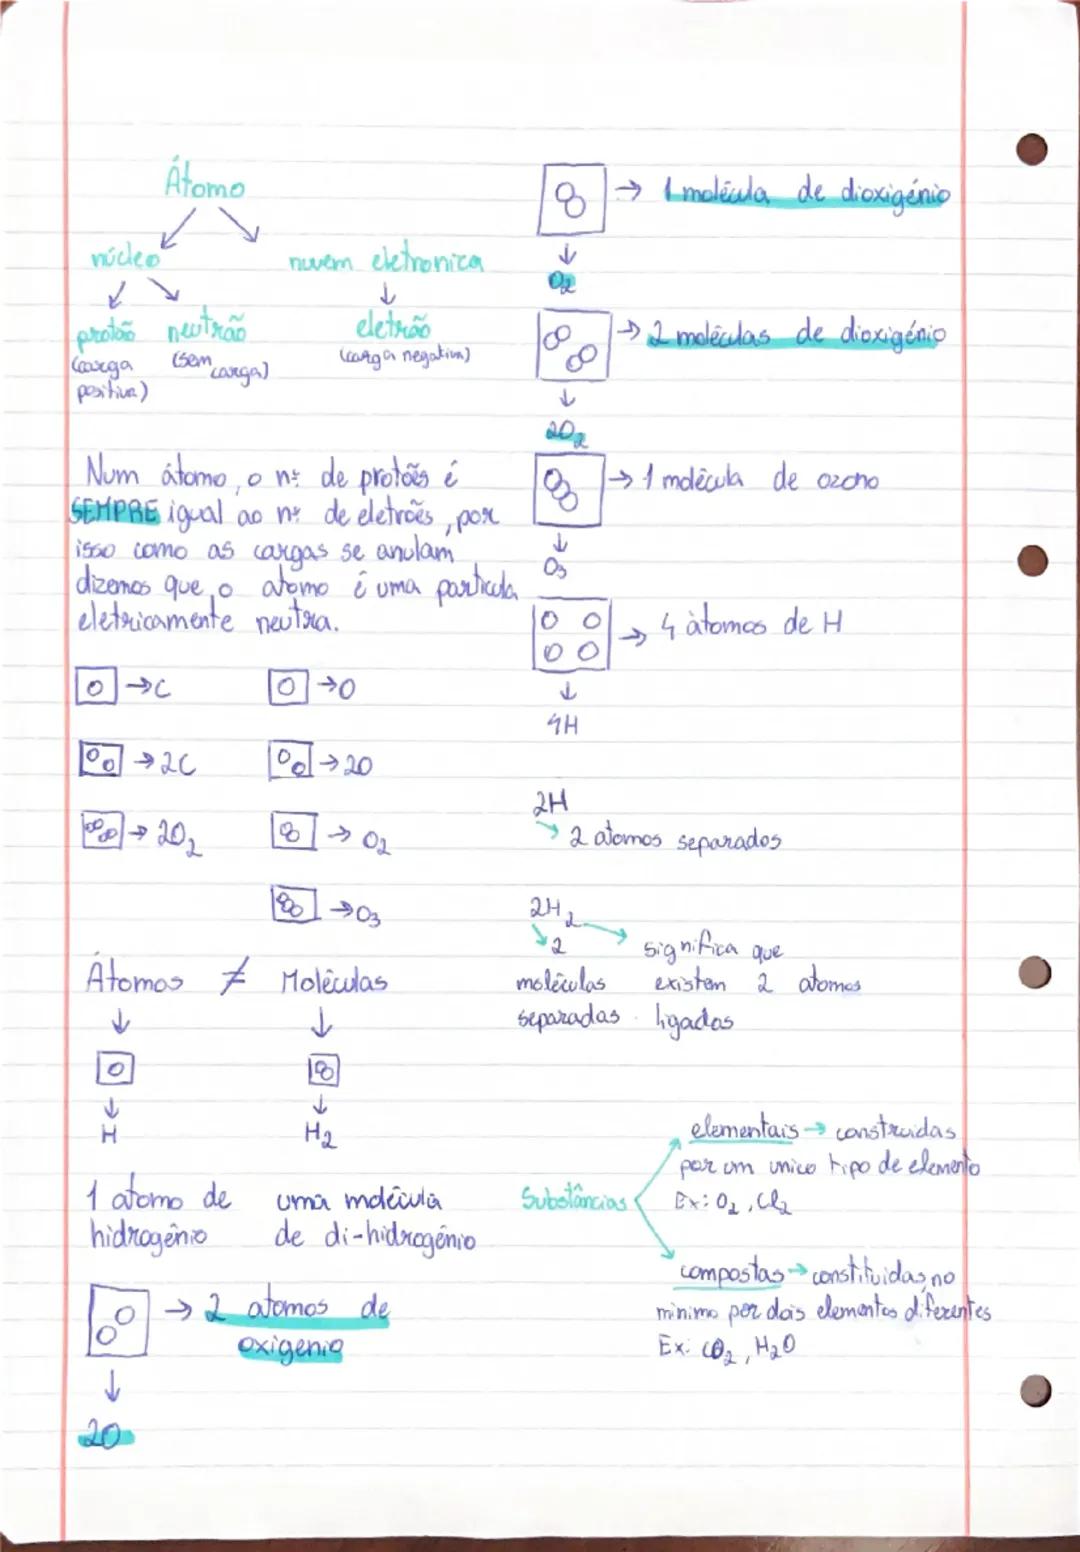 Átomo
núcleo
nuvem eletronica
protão
neutrão
eletrão
(carga
positiva)
(sem
carga)
(carga negativa)
Num átomo, o nº de protões é
SEMPRE igual ao nº de eletrões, por
isso como as cargas se anulam
dizemos que, o atomo é uma particula
eletricamente neutra.
→C
→O
→2C
→2O
→2O₂
→O₂
→O₃
Átomos ≠ Moléculas
↓ ↓
↓ ↓
H H₂
1 atomo de
hidrogénio
uma molécula
de di-hidrogénio
→ 2 atomos de
oxigenio
↓
2O
→ 1 molécula de dioxigénio
↓
O₂
→ 2 moléculas de dioxigénio
↓
2O₂
→ 1 molécula de ozono
↓
O₃
→ 4 àtomos de H
↓
4H
2H
→ 2 atomos separados
2H₂
2
moléculas
separadas
significa que
existem 2 atomos
ligados
Substâncias
elementais → construidas
por um unico tipo de elemento
Ex: O₂, Cl₂
compostas → constituidas, no
minimo por dois elementos diferentes
Ex: CO₂, H₂O